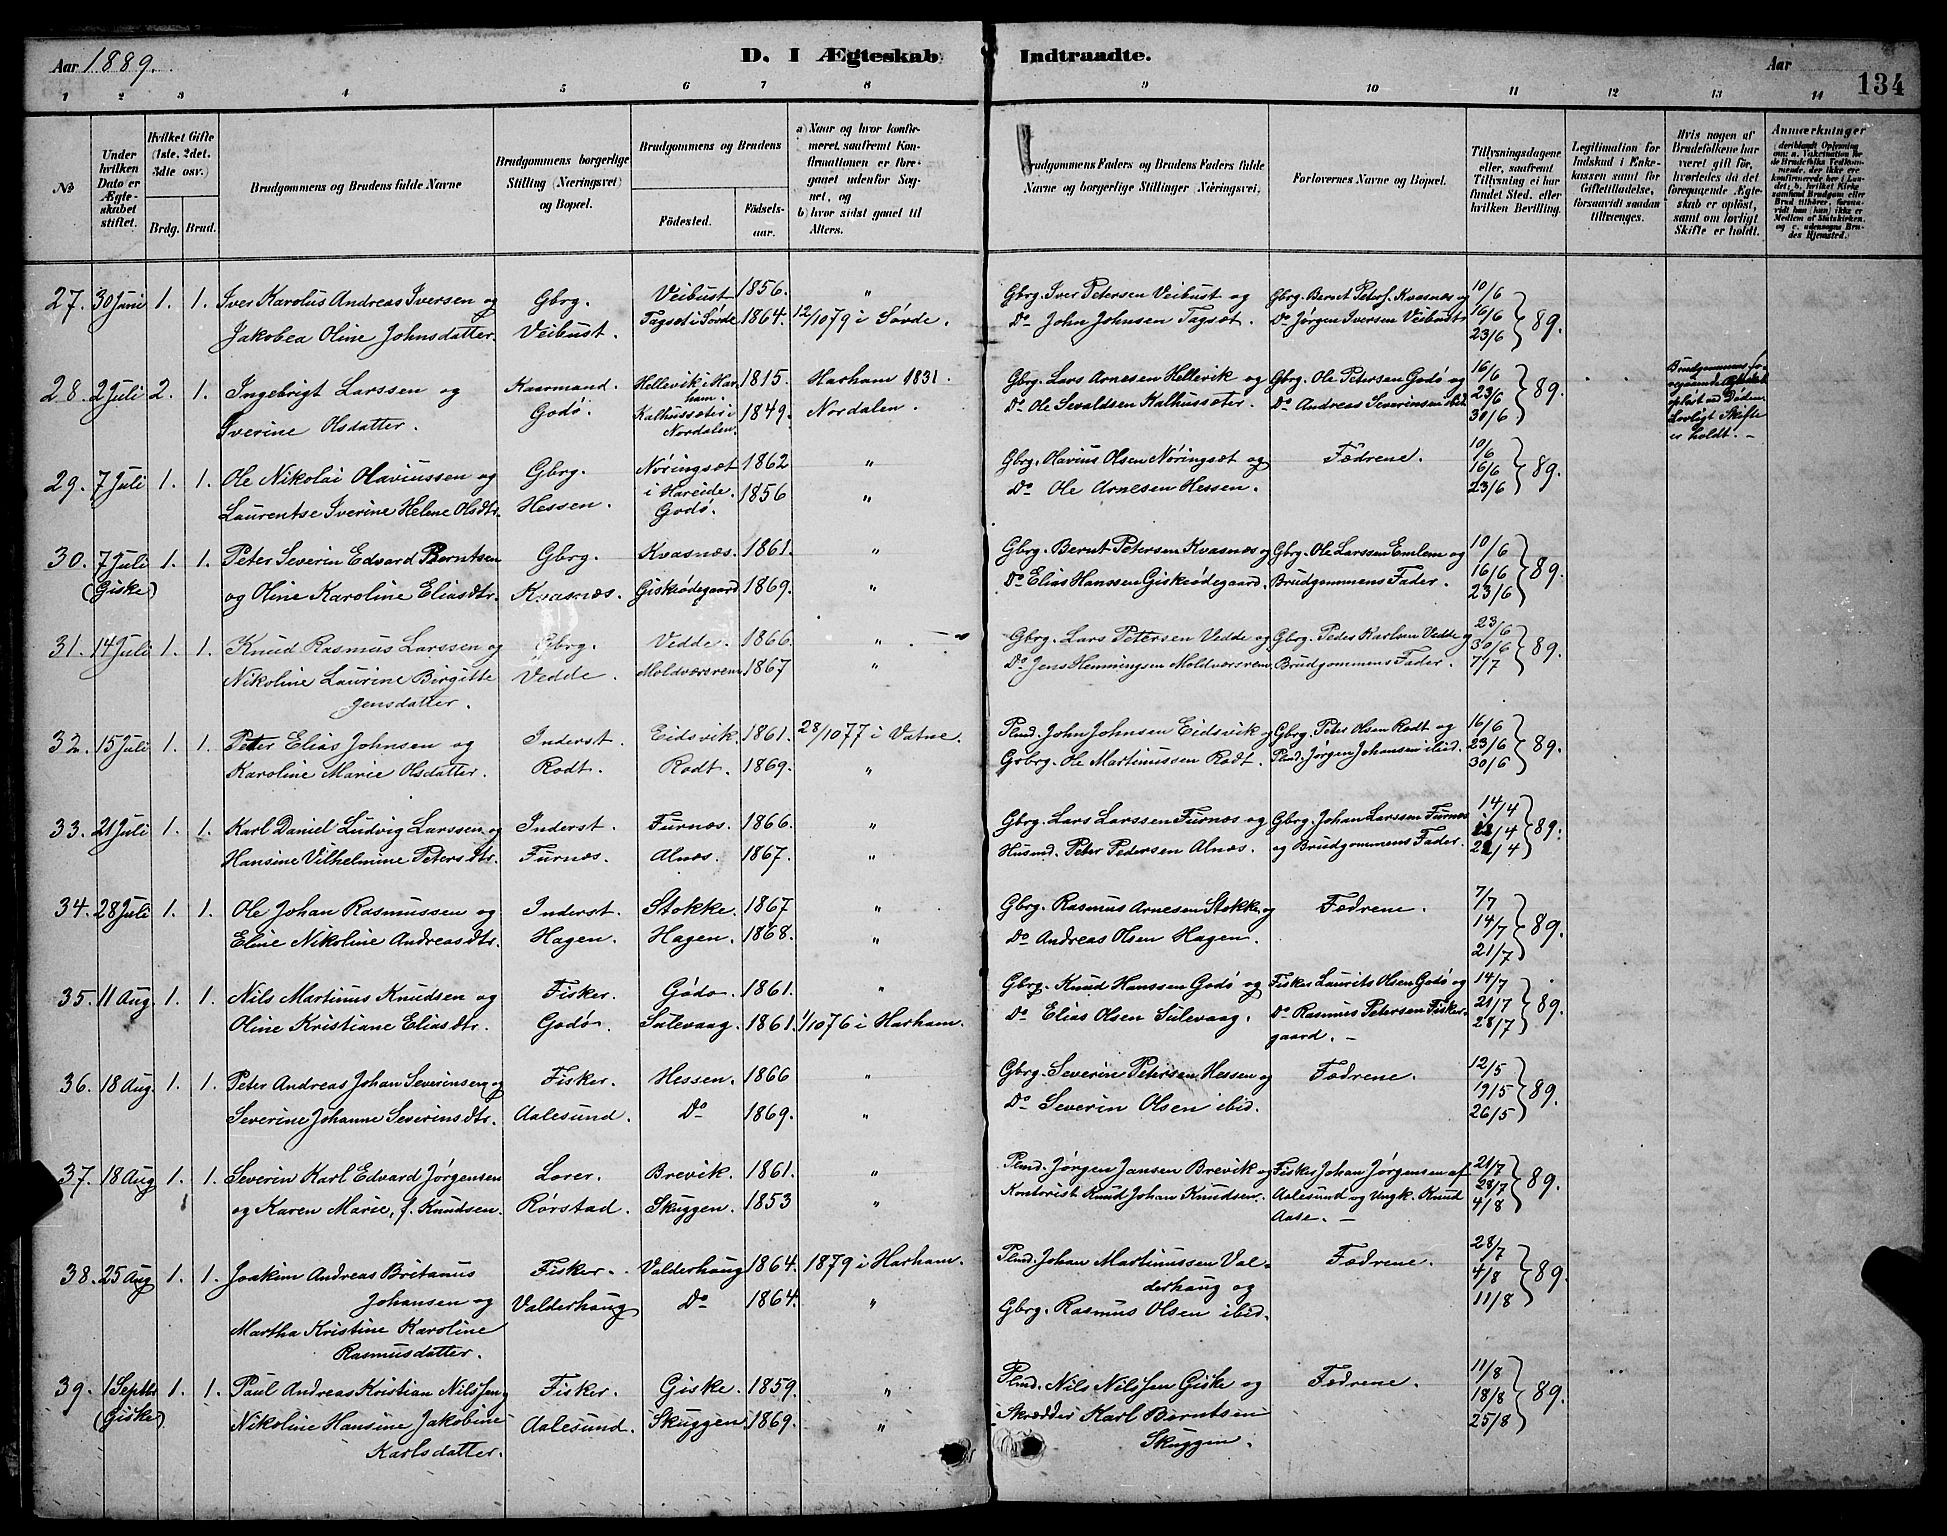 Aar 1889.
D. I Ægteskab Indtraadte.
Aar
134
1 2 3 4 5 6 7 8 9 10 11 12 13 14
No
Under hvilken Dato er Ægteskabet stiftet.
Hvilket Gifte (1ste, 2det, 3dte osv.)
Brdg. Brud.
Brudgommens og Brudens fulde Navne
Brudgommens borgerlige Stilling (Næringsvei) og Bopæl.
Brudgommens og Brudens
Fødested.
Fødselsaar.
a) Naar og hvor konfirmeret, saafremt Konfirmationen er foregaaet udenfor Sognet, og
b) hvor sidst gaaet til Alters.
Brudgommens Faders og Brudens Faders fulde Navne og borgerlige Stillinger (Næringsvei).
Forlovernes Navne og Bopæl.
Tillysningsdagene eller, saafremt Tillysning ei har fundet Sted, efter hvilken Bevilling.
Legitimation for Indskud i Enkekassen samt for Giftetilladelse, forsaavidt saadan tiltrænges.
Hvis nogen af Brudefolkene har været gift før, hvorledes da det foregaaende Ægteskab er opløst, samt om lovligt Skifte er holdt.
Anmærkninger
27. 30 Juni 1. 1. Iver Karolus Andreas Iversen og Gbrg. Veibust 1856. " Gbrg. Iver Petersen Veibust og Gbrg. Bernt Peters. Kvasnes og 10/6
Jakobea Oline Johnsdatter. Veibust. Tagsæt i Sørde 1864. 12/10 79 i Sørde. Do John Johnsen Tagsæt. Do Jørgen Iversen Veibust 16/6 23/6 89.
28. 2 Juli 2. 1. Ingebrigt Larssen og Kaarmand. Hellevik i Harham. 1815. Harham 1831. Gbrg. Lars Arnesen Hellevik og Gbrg. Ole Petersen Godø og 16/6
Iverine Olsdatter. Godø. Kalhussæter i Nordalen. 1849. Nordalen. Do Ole Sevaldsen Kalhussæter. Do Andreas Severinsen ibid. 23/6 30/6 89.
Brudgommens foregaaende Ægteskab opløst ved Døden. Lovligt Skifte er holdt. -
29. 7 Juli 1. 1. Ole Nikolai Olaviussen og Gbrg. Nøringsæt i Hareide. 1862 " Gbrg. Olavius Olsen Nøringsæt og Fædrene. 10/6
Laurentse Iverine Helene Olsdtr. Hessen. Godø. 1856 " Do Ole Arnesen Hessen. 16/6 23/6 89.
30. 7 Juli 1. 1. Peter Severin Edvard Berntsen Gbrg. Kvasnæs. 1861. " Gbrg. Bernt Petersen Kvasnæs og Gbrg. Ole Larssen Emlem og 10/6
(Giske) og Oline Karoline Eliasdtr. Kvasnæs. Giskeødegaard 1869. " Do Elias Hanssen Giskeødegaard. Brudgommens Fader. 16/6 23/6 89.
31. 14 Juli 1. 1. Knud Rasmus Larssen og Gbrg. Vedde. 1866. " Gbrg. Lars Petersen Vedde og Gbrg. Peder Karlsen Vedde og 23/6
Nikoline Laurine Birgitte Vedde. Moldværsrem 1867 " Do Jens Henningsen Moldværsrem. Brudgommens Fader. 30/6 7/7 89.
Jensdatter.
32. 15 Juli 1. 1. Peter Elias Johnsen og Inderst. Eidsvik. 1861. 28/10 77 i Vatne. Plmd. John Johnsen Eidsvik og Gbrg. Peter Olsen Rodt og 16/6
Karoline Marie Olsdatter. Rodt. Rodt. 1869. " Gbrg. Ole Martinussen Rodt. Plmd. Jørgen Johansen ibid. 23/6 30/6 89.
33. 21 Juli 1. 1. Karl Daniel Ludvig Larssen og Inderst. Furnæs. 1866. " Gbrg. Lars Larssen Furnæs og Gbrg. Johan Larssen Furnæs 14/4
Hansine Vilhelmine Petersdtr. Furnæs. Alnæs. 1867. " Husmd. Peter Pedersen Alnæs. og Brudgommens Fader. 21/4 89.
34. 28 Juli 1. 1. Ole Johan Rasmussen og Inderst. Stokke. 1867 " Gbrg. Rasmus Arnesen Stokke og Fædrene. 7/7
Eline Nikoline Andreasdtr. Hagen. Hagen. 1868. " Do Andreas Olsen Hagen. 14/7 21/7 89.
35. 11 Aug. 1. 1. Nils Martinus Knudsen og Fisker. Godø. 1861. " Gbrg. Knud Hanssen Godø og Fisker Laurits Olsen Godø og 14/7
Oline Kristiane Eliasdtr. Godø. Sulevaag. 1861. 1/10 76 i Harham. Do Elias Olsen Sulevaag. Do Rasmus Petersen Fiskergaard. - 21/7 28/7 89.
36. 18 Aug. 1. 1. Peter Andreas Johan Severinsen og Fisker. Hessen. 1866 " Gbrg. Severin Petersen Hessen og Fædrene. 12/5
Severine Johanne Severinsdtr. Aalesund. Do 1869. " Do Severin Olsen ibid. 19/5 26/5 89.
37. 18 Aug. 1. 1. Severin Karl Edvard Jørgensen Lærer. Brevik. 1861. " Plmd. Jørgen Jansen Brevik og Fisker Johan Jørgensen af 21/7
og Karen Marie, f. Knudsen. Rørstad. Skuggen. 1853 " Kontorist Knud Johan Knudsen. Aalesund og Ungk. Knud Aase. - 28/7 4/8 89.
38. 25 Aug 1. 1. Joakim Andreas Britanus Fisker. Valderhaug 1864. 1879 i Harham. Plmd. Johan Martinussen Valderhaug og Fædrene. 28/7
Johansen og Valderhaug Do 1864. " Gbrg. Rasmus Olsen ibid. 4/8 11/8 89.
Martha Kristine Karoline
Rasmusdatter.
39. 1 Septbr 1. 1. Paul Andreas Kristian Nilssen og Fisker. Giske. 1859. " Plmd. Nils Nilssen Giske og Fædrene. 11/8
(Giske) Nikoline Hansine Jakobine Aalesund. Skuggen 1869. " Skrædder Karl Berntsen Skuggen. 18/8 25/8 89.
Karlsdatter.